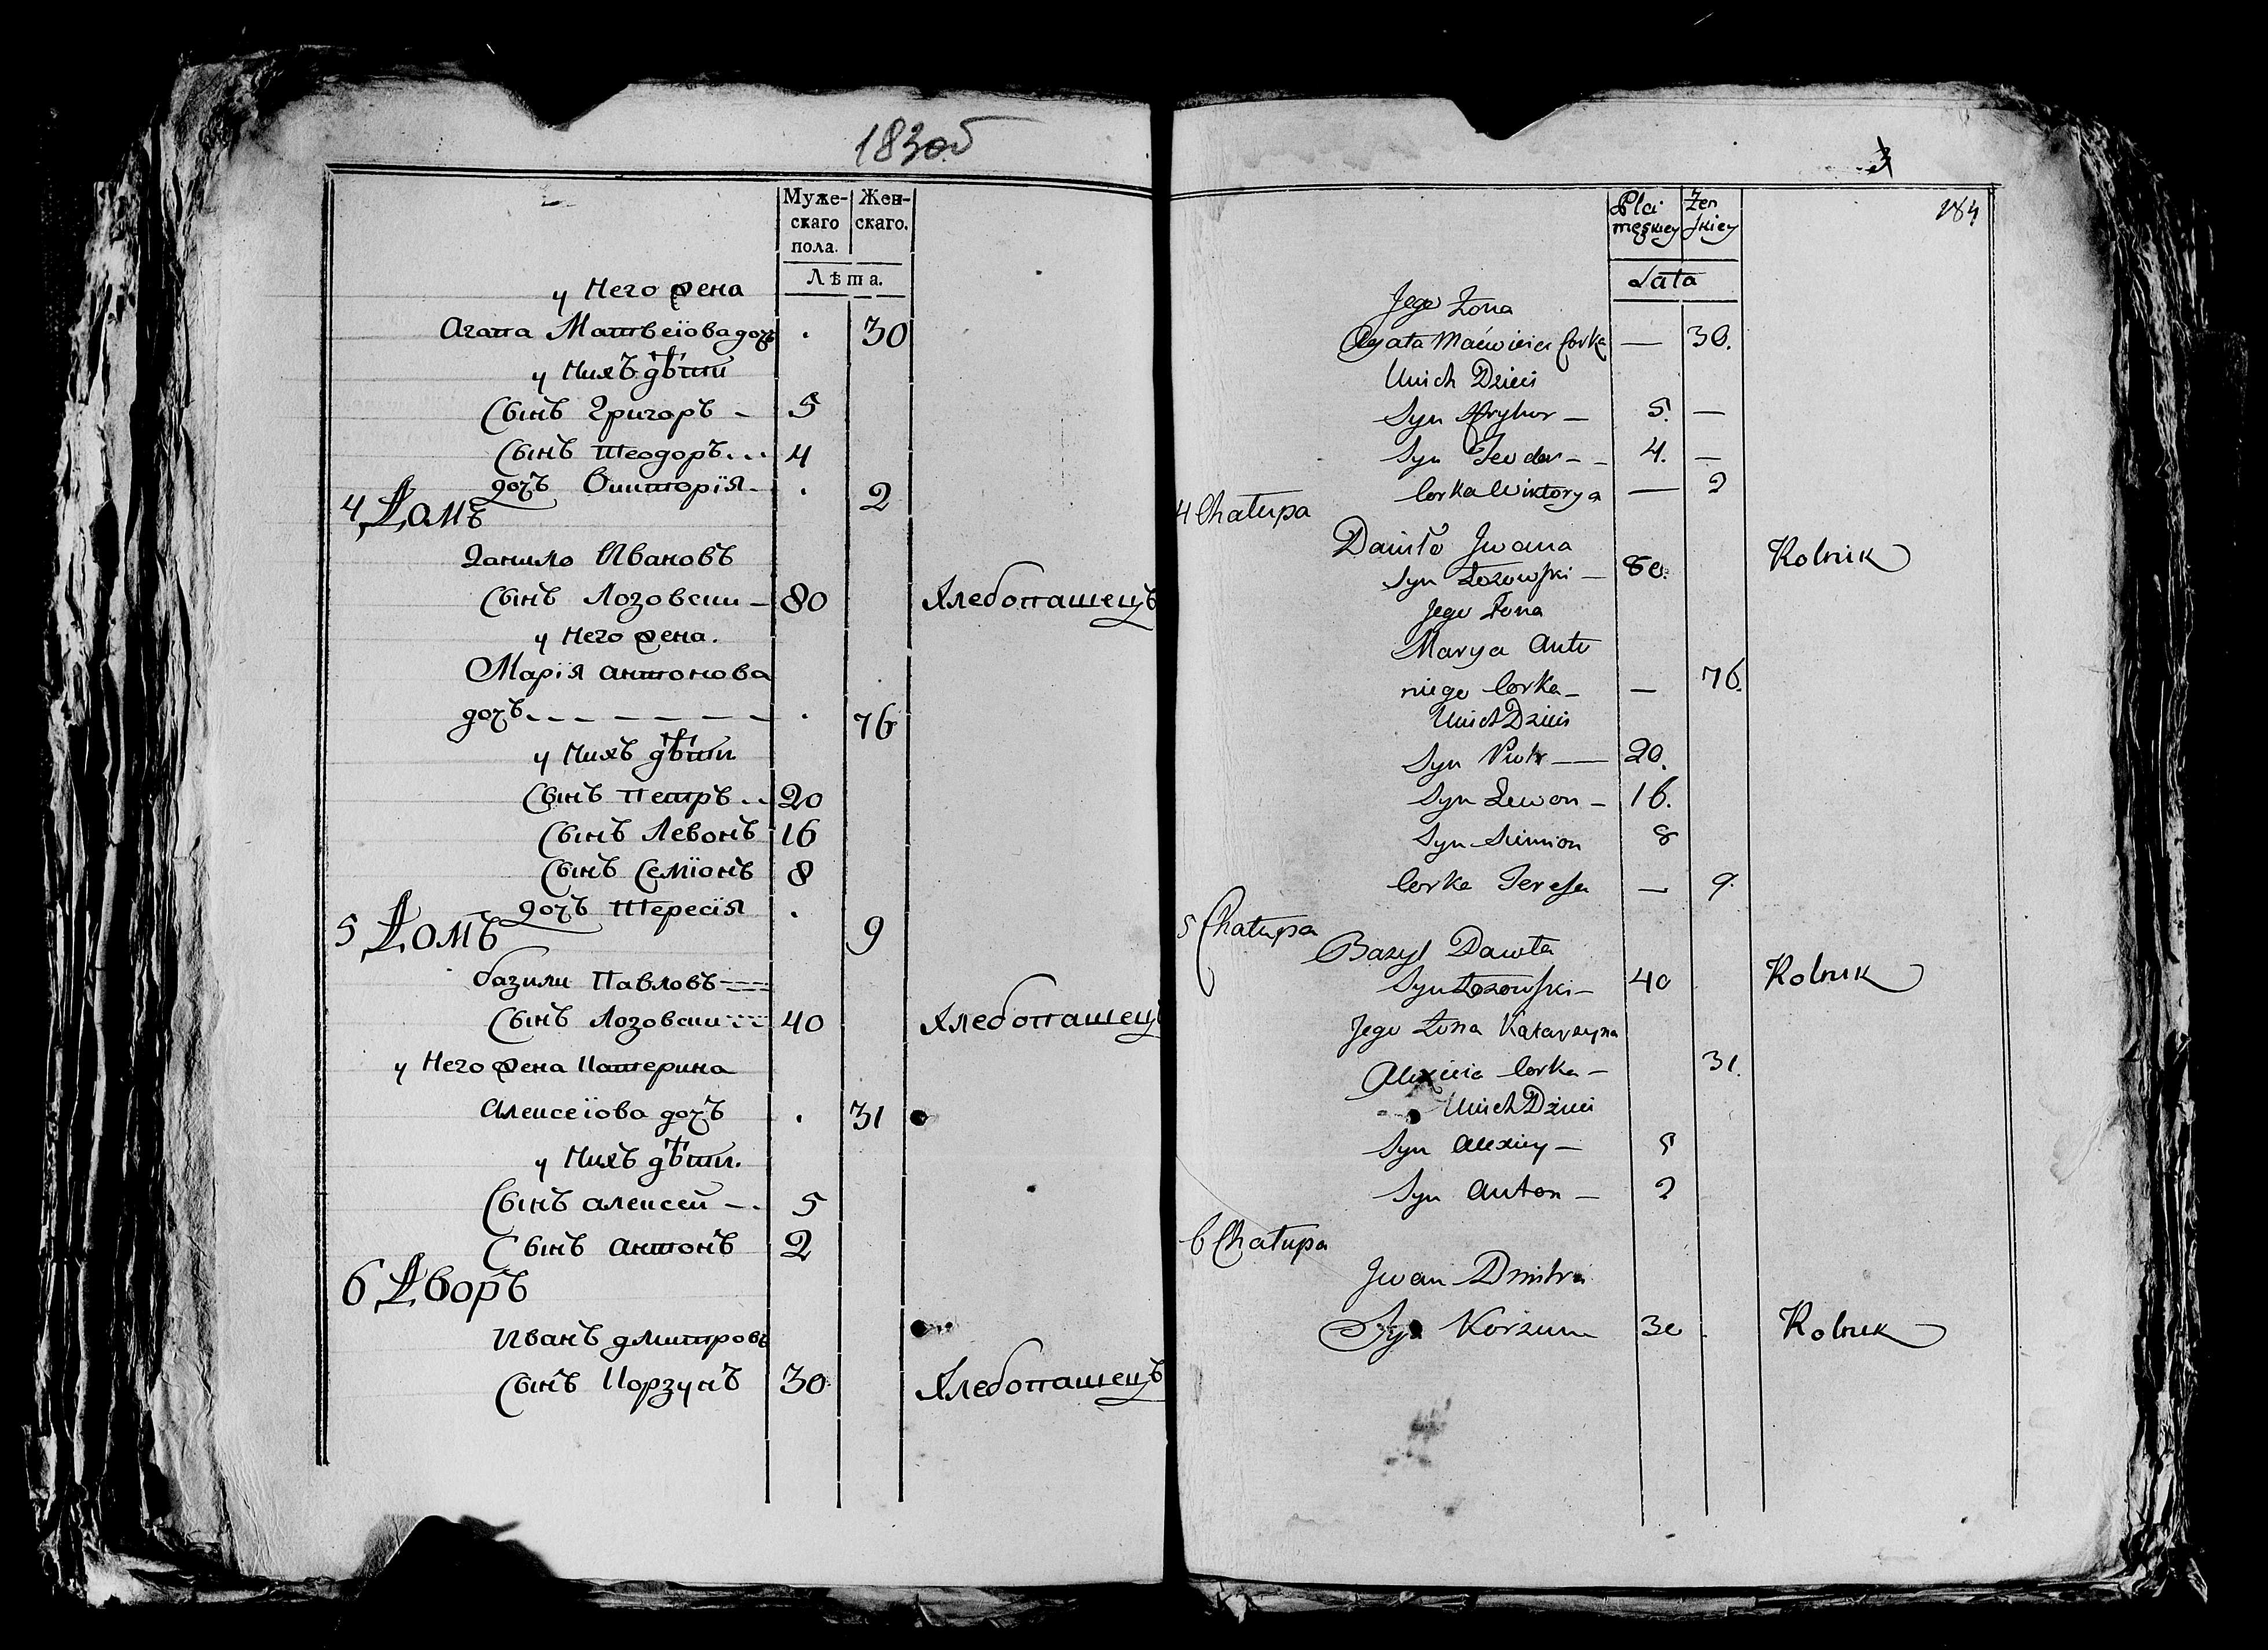 183об
Муже- Жен-
скаго скаго.
пола.
Лѣта.
у Него жена
Агата Матвеіова дочъ . 30
у Нихъ дѣти
Сынъ Григоръ - 5
Сынъ Теодоръ... 4
дочъ Викторія - . 2
4 Домъ
Данило Ивановъ
Сынъ Лозовски - 80 Хлебопашецъ
у Него жена.
Марія антонова
дочъ - - - - - - - . 76
у Нихъ дѣти
Сынъ Петръ .. 20
Сынъ Левонъ 16
Сынъ Семіонъ 8
дочъ Тересія . 9
5 Домъ
базили Павловъ
Сынъ Лозовски 40 Хлебопашецъ
у Него жена Катерина
Алексеіова дочъ . 31
у Нихъ дѣти.
Сынъ алексей -. 5
Сынъ антонъ 2
6 Дворъ
Иванъ дмитровъ
Сынъ Корзунъ 30 Хлебопашецъ
184
Płci Żeń
męskiey skiey
Lata
Jego Żona
Agata Maćwieia Corka — 30.
Unich Dzieci
Syn Hryhor — 5. —
Syn Teodor - - 4. —
Corka Wiktorya — 2
4 Chałupa
Daniło Jwana
Syn Łozowski — 80. Rolnik
Jego Żona
Marya Anto
niego Corka - — 76.
Unich Dzieci
Syn Piotr — 20.
Syn Lewon - 16.
Syn Simion 8
Corka Teresa — 9.
5 Chałupa
Bazyl Pawła
Syn Łozowski - 40 Rolnik
Jego Żona Katarzyna
Alexieia Corka - 31.
Unich Dzieci
Syn Alexiey - 5
Syn Anton - 2
6 Chałupa
Jwan Dmitra
Syn Korzun 30 Rolnik